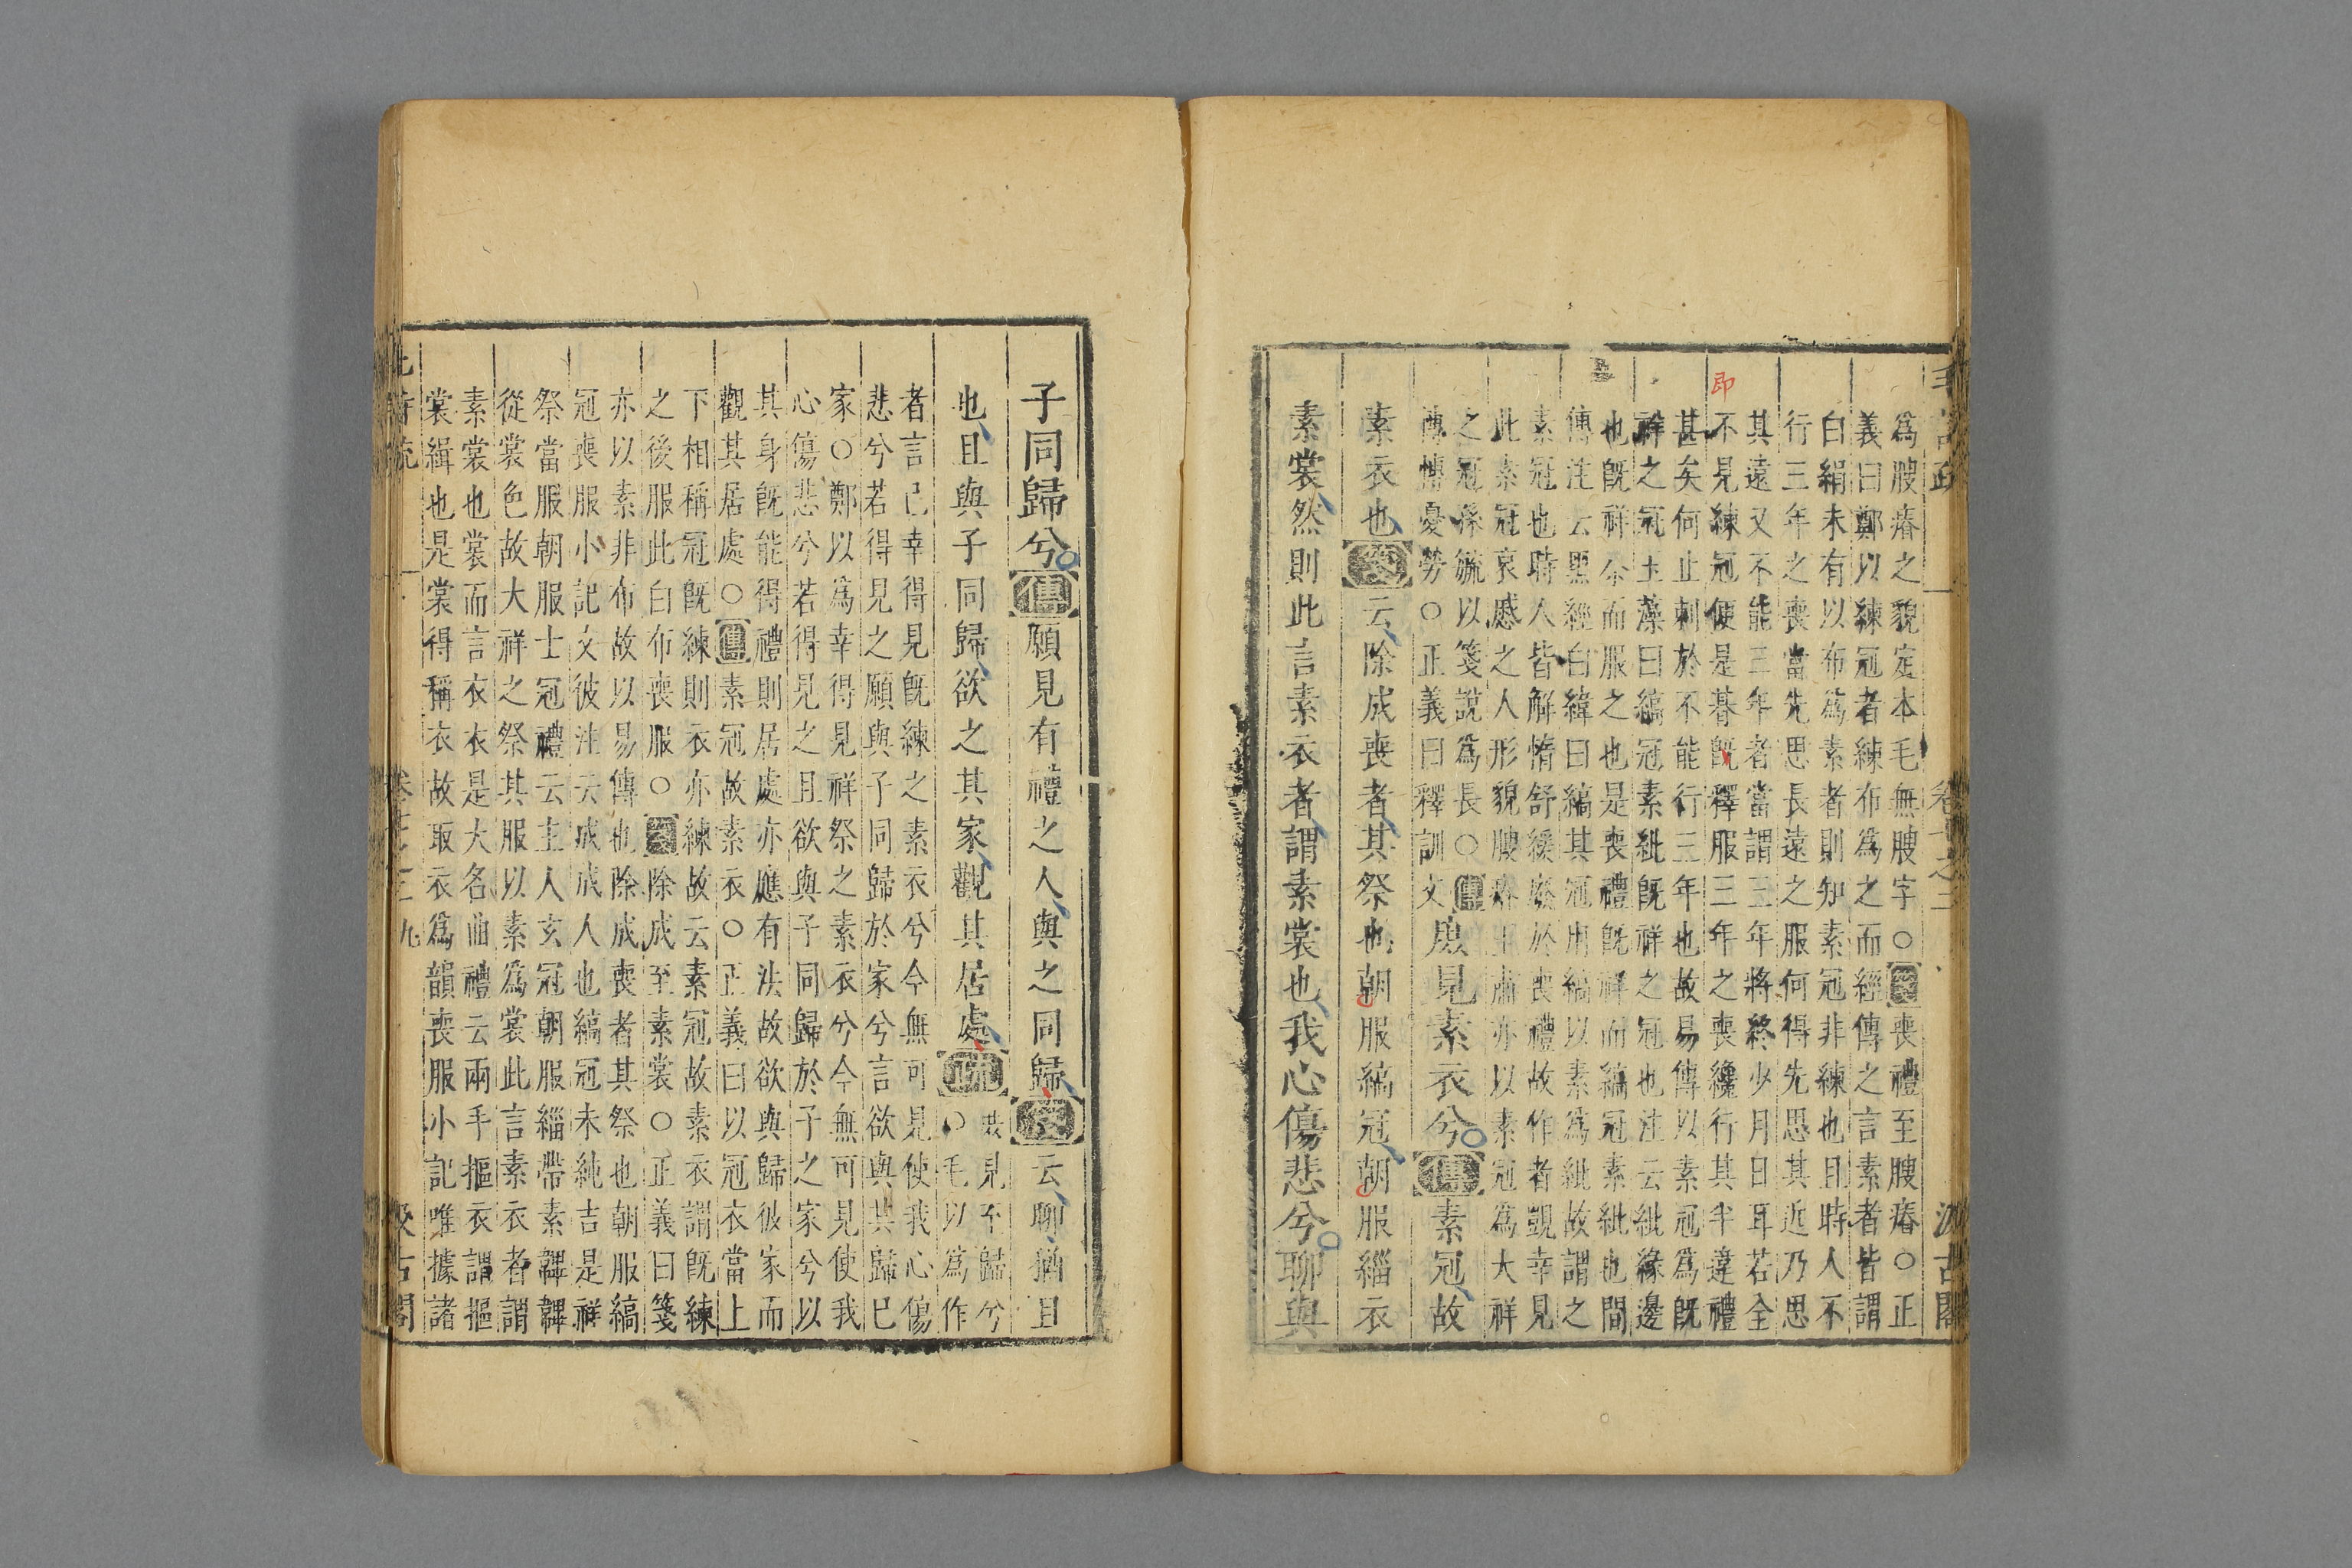 爲腹瘠之貌定本毛無腹字○箋喪禮至腹瘠○正
義曰鄭以練冠者練布爲之而經傳之言素者皆謂
白絹未有以布爲素者則知素冠非練也且時人不
行三年之喪當先思長遠之服何得先思其近乃思
其遠又不能三年者當謂三年將終少月日耳若全
不見練冠便是朞既釋服三年之喪纔行其半違禮
甚矣何止刺於不能行三年也故易傳以素冠爲既
祥之冠玉藻曰縞冠素紕既祥之冠也注云紕緣邊
也既祥今而服之也是喪禮既祥而縞冠素紕也間
傳注云黑經白緯曰縞其冠用縞以素爲紕故謂之
素冠也時人皆解惰舒緩廢於喪禮故作者覬幸見
此素冠哀慼之人形貌腹瘠王肅亦以素冠爲大祥
之冠孫毓以箋說爲長○傳
慱慱憂勞○正義曰釋訓文
庶見素衣兮傳素冠故
素衣也箋云除成喪者其祭也朝服縞冠朝服緇衣
素裳然則此言素衣者謂素裳也我心傷悲兮聊與
子同歸兮傳願見有禮之人與之同歸箋云聊猶且
也且與子同歸欲之其家觀其居處疏
見至歸兮
○毛以爲作
者言已幸得見既練之素衣兮今無可見使我心傷
悲兮若得見之願與子同歸於家兮言欲與其歸已
家○鄭以爲幸得見祥祭之素衣兮今無可見使我
心傷悲兮若得見之且欲與子同歸於子之家兮以
其身既能得禮則居處亦應有法故欲與歸彼家而
觀其居處○傳素冠故素衣○正義曰以冠衣當上
下相稱冠既練則衣亦練故云素冠故素衣謂既練
之後服此白布喪服○箋除成至素裳○正義曰箋
亦以素非布故以易傳也除成喪者其祭也朝服縞
冠喪服小記文彼注云成成人也縞冠未純吉是祥
祭當服朝服士冠禮云主人玄冠朝服緇帶素韠韠
從裳色故大祥之祭其服以素爲裳此言素衣者謂
素裳也裳而言衣衣是大名曲禮云兩手摳衣謂摳
裳緝也是裳得稱衣故取衣爲韻喪服小記唯據諸